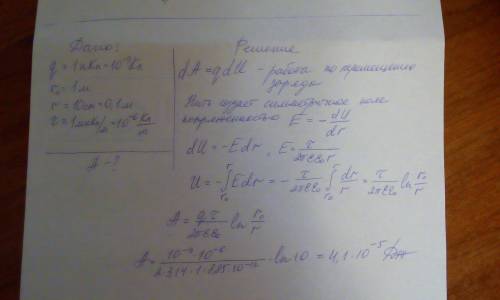 Дано:
q = 1нКл = 10⁻⁹Кл
r₀ = 1м
r = 10см = 0,1м
τ = 1мкКл/м = 10⁻⁶ Кл/м
A - ?
Решение
dA = qdU - работа по перемещению
заряда
Нить создает симметричное поле
напряженностью E = -dU/dr
dU = -Edr , E = τ/2πεε₀
U = -∫Edr = -τ/2πεε₀ ∫dr/r = τ/2πεε₀ ln r₀/r
A = qτ/2πεε₀ ln r₀/r
A = 10⁻⁹·10⁻⁶/2·3,14·1·8,85·10⁻¹² · ln10 = 4,1·10⁻⁵ Дж